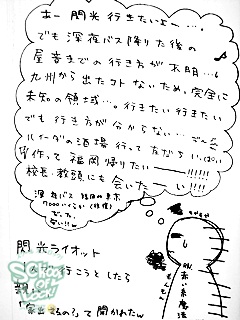 あー 閃光行きたいよー…。
でも深夜バス降りた後の
屋音までの行き方が不明…。
九州から出たコトないため、完全に
未知の領域…。行きたい行きたい
でも行き方が分からない…。
ルイーダの酒場行って友だちいっぱい
作って福岡帰りたいー!!!!!
校長、教頭にも会いたーい!!!
深夜バス 福岡⇔東京
7000いくらか(往復)
だった。
安い!!w
閃光ライオット
行こうとしたら
親に
「家出するの?」って聞かれたw
脱・赤い糸魔法